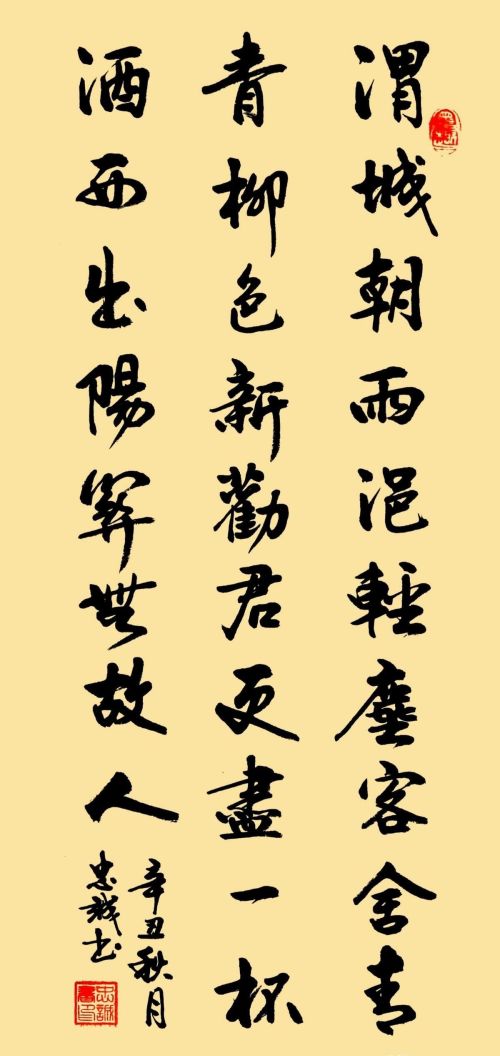 渭城朝雨浥輕塵客舍青
青柳色新勸君更盡一杯
酒西出陽關無故人
辛丑秋月
忠誠書